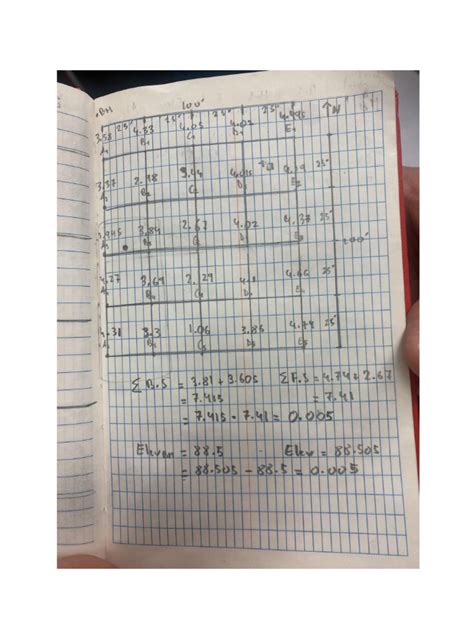 BM 100' ↑N
25' 25' 25' 25'
3.58 4.33 4.05 4.02
A1 B1 C1 D1 E1
3.37 2.98 4.19 25'
A2 B2 C2 D2 E2
3.945 3.84 2.67 4.02 4.38 25'
A3 B3 C3 D3 E3
100'
4.27 3.69 2.29 4.1 4.66 25'
4.31 3.3 1.06 3.85 4.74 25'
A5 B5 C5 D5 E5
Σ B.S = 3.81 + 3.605 Σ F.S = 4.74 + 2.67
= 7.415 = 7.41
= 7.415 - 7.41 = 0.005
= 88.5 Elev = 88.505
= 88.505 - 88.5 = 0.005